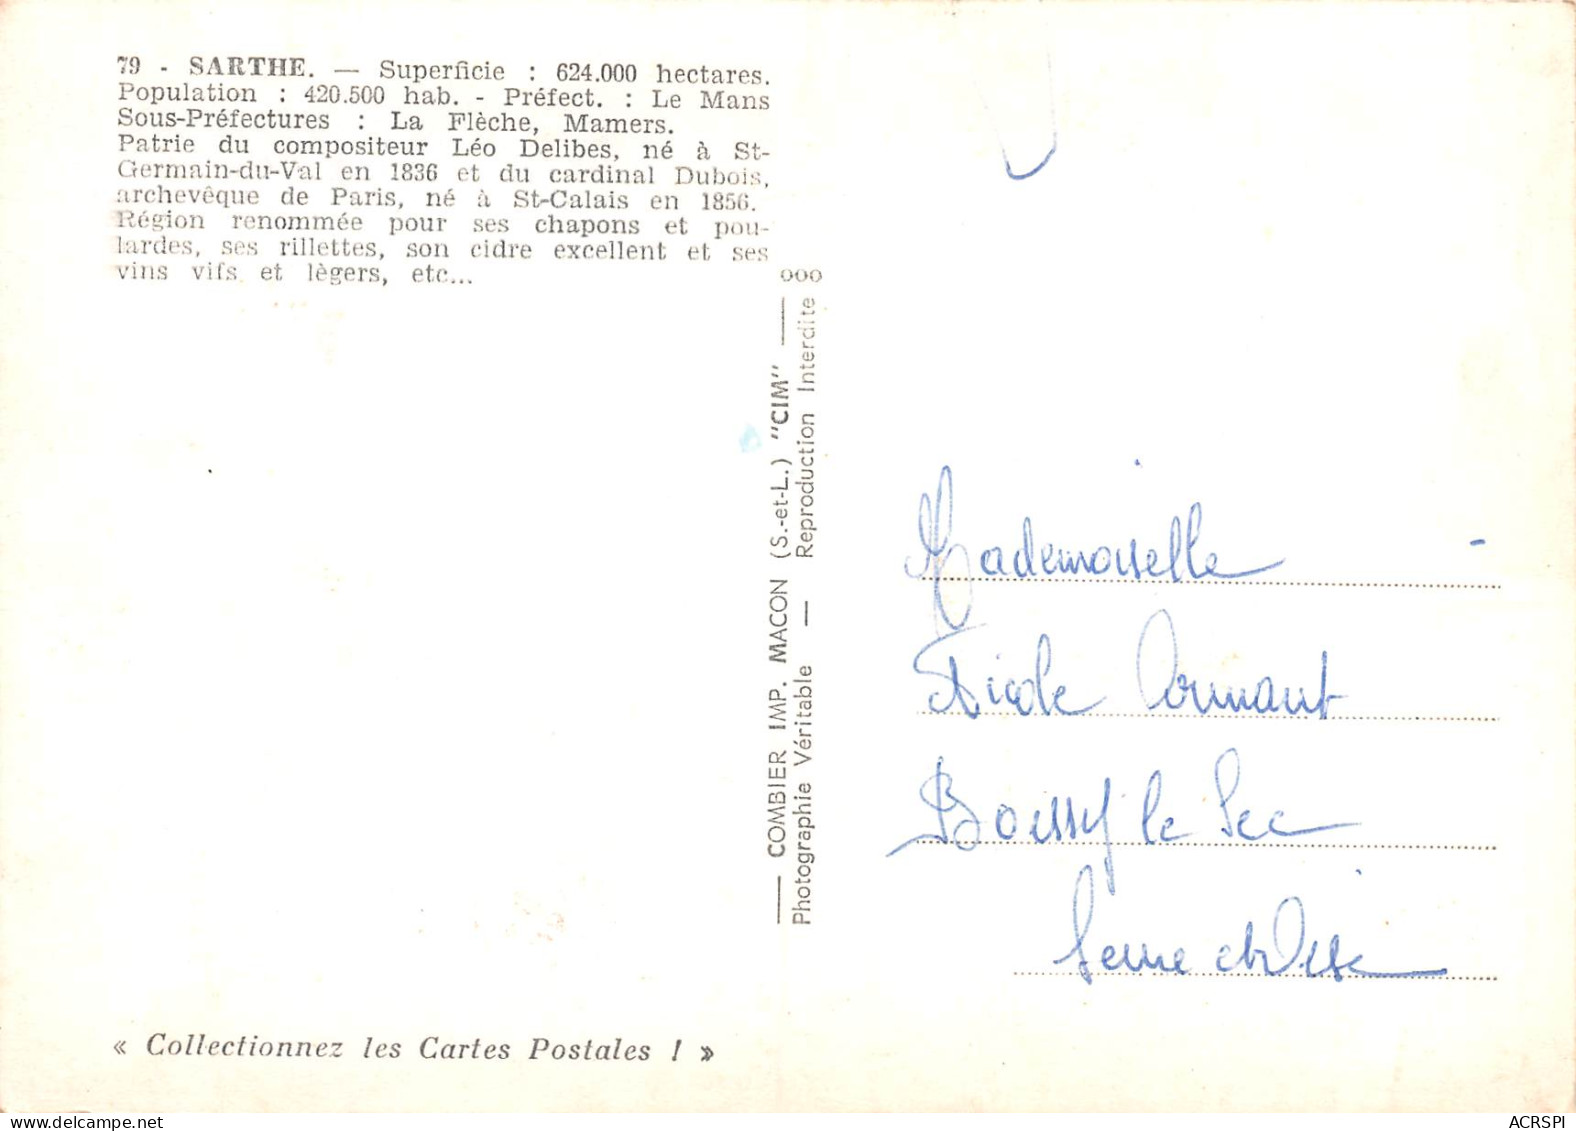 79 - SARTHE. — Superficie : 624.000 hectares.
Population : 420.500 hab. - Préfect. : Le Mans
Sous-Préfectures : La Flèche, Mamers.
Patrie du compositeur Léo Delibes, né à St-
Germain-du-Val en 1836 et du cardinal Dubois,
archevêque de Paris, né à St-Calais en 1856.
Région renommée pour ses chapons et pou-
lardes, ses rillettes, son cidre excellent et ses
vins vifs et lègers, etc...
ooo
— COMBIER IMP. MACON (S.-et-L.) "CIM" —
Photographie Véritable — Reproduction Interdite
Mademoiselle
Nicole
Boissy le Sec
Seine et Oise
« Collectionnez les Cartes Postales ! »
ACRSPI